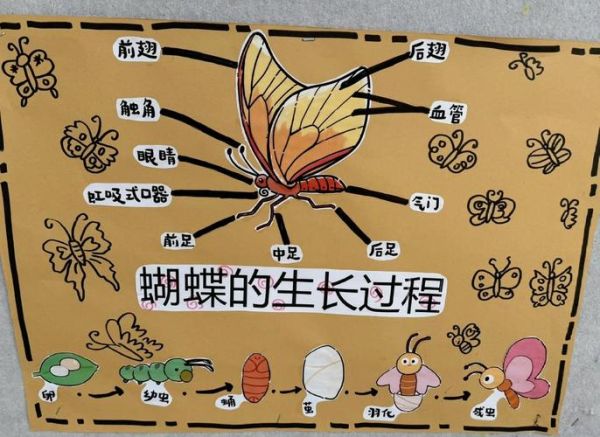 前翅
后翅
触角
血管
眼睛
虹吸式口器
气门
前足
中足
后足
蝴蝶的生长过程
卵
幼虫
蛹
茧
羽化
成虫